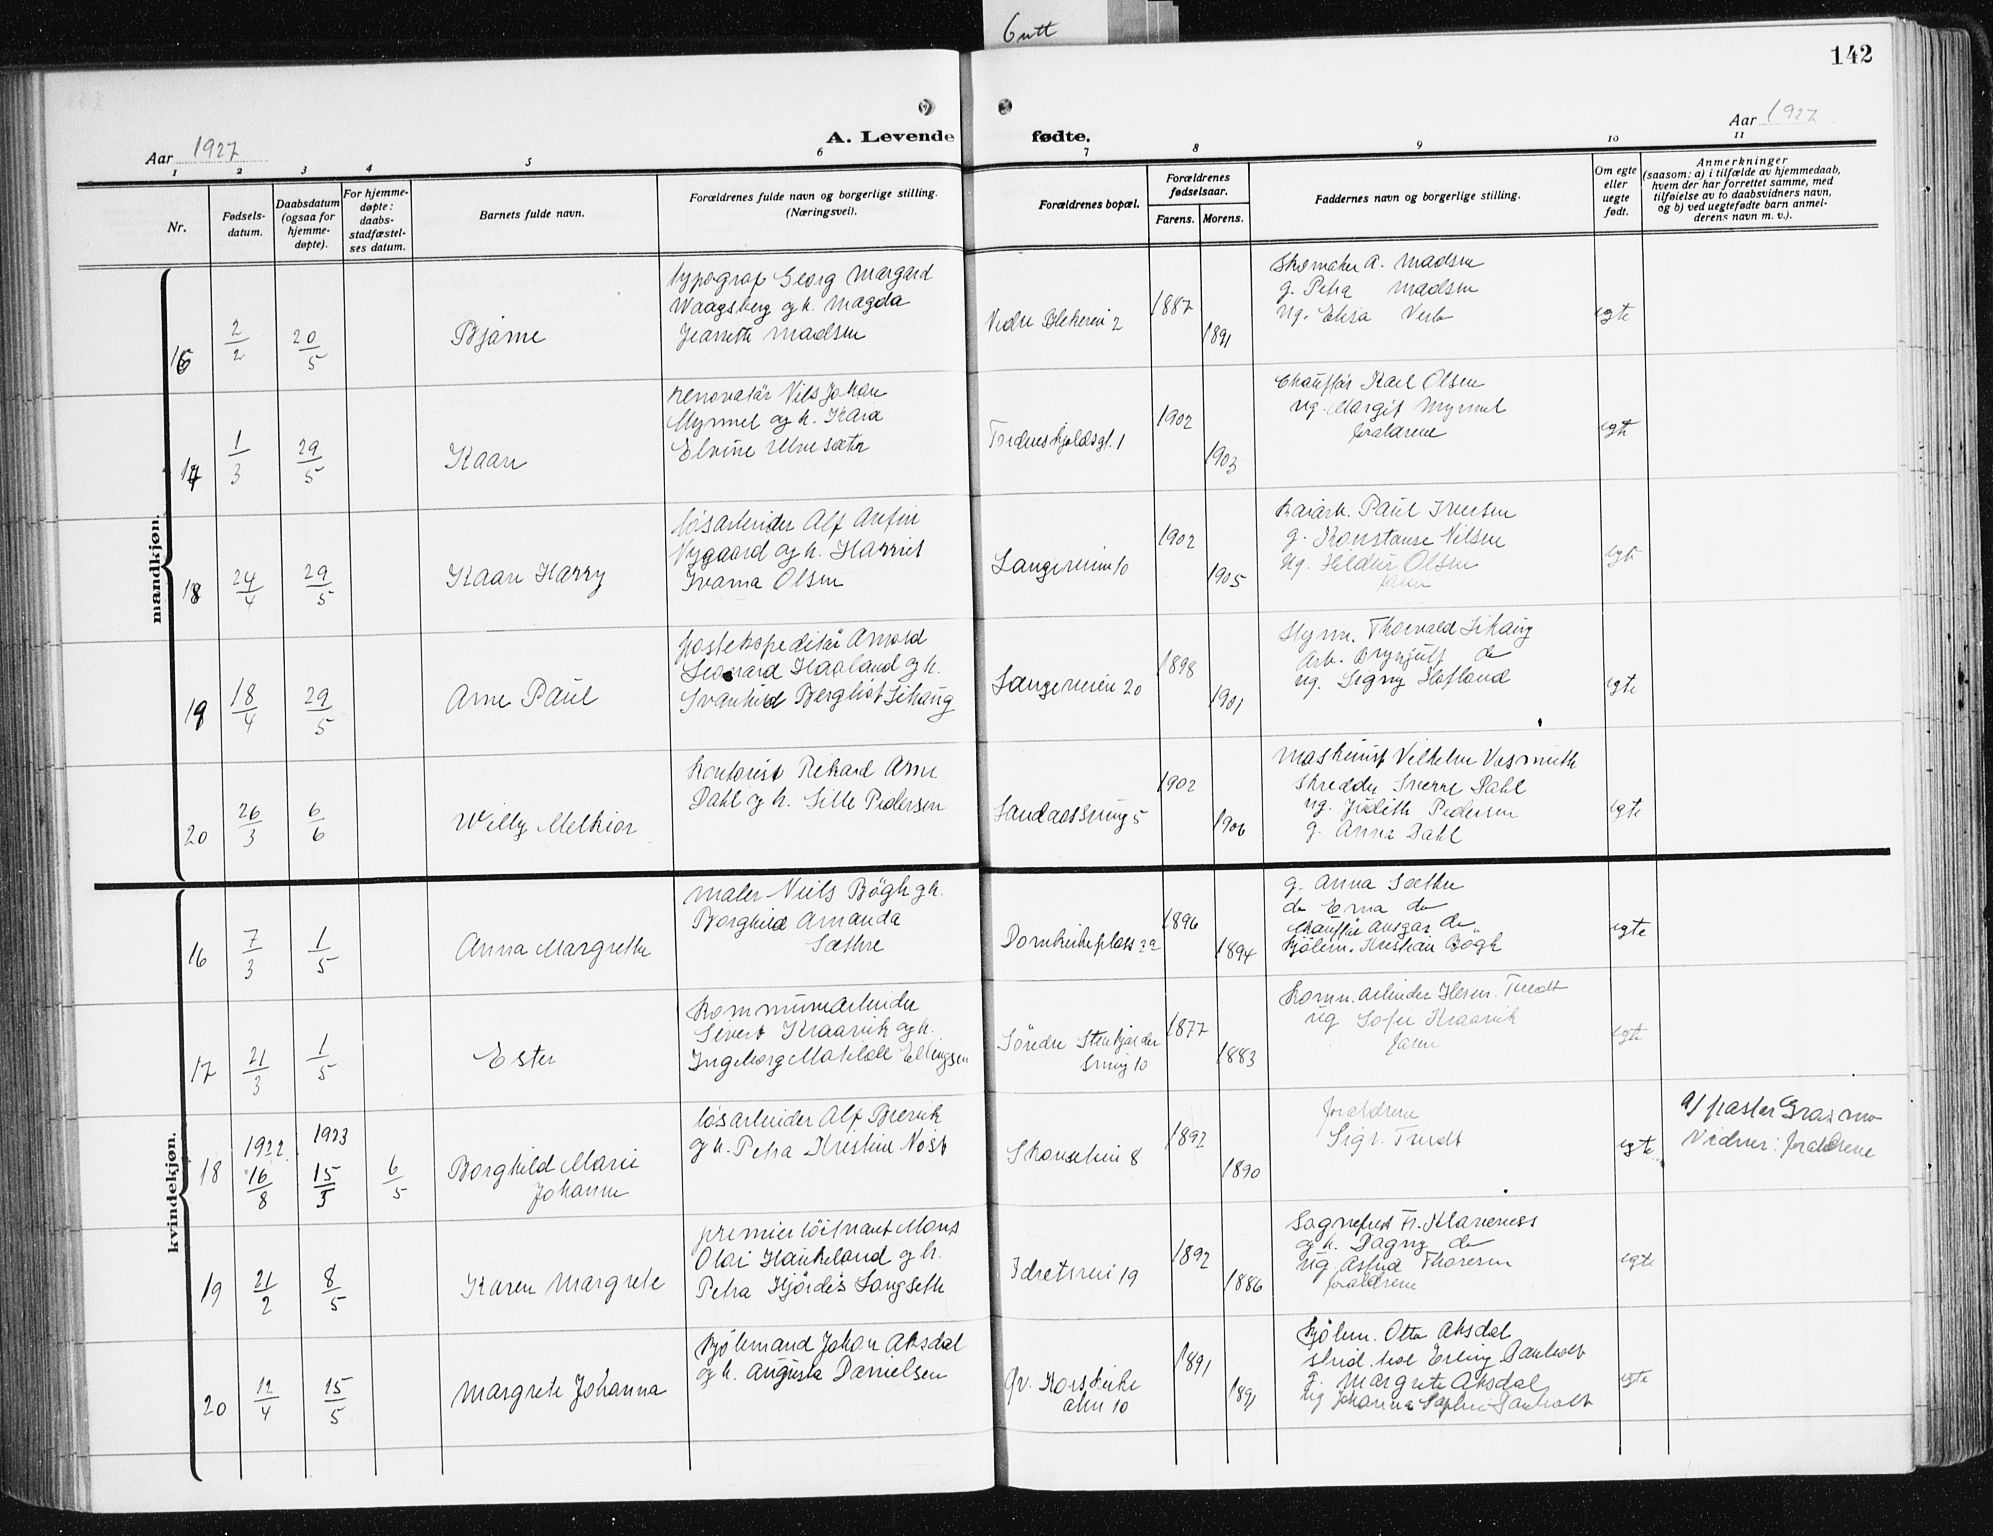 Gutt
142
Aar 1927
A. Levende fødte.
Aar 1927
1 2 3 4 5 6 7 8 9 10 11
Nr.
Fødsels-
datum.
Daabsdatum
(ogsaa for
hjemme-
døpte).
For hjemme-
døpte:
daabs-
stadfæstel-
ses datum.
Barnets fulde navn.
Forældrenes fulde navn og borgerlige stilling.
(Næringsvei).
Forældrenes bopæl.
Forældrenes
fødselsaar.
Farens. Morens.
Faddernes navn og borgerlige stilling.
Om egte
eller
uegte
født.
Anmerkninger
(saasom: a) i tilfælde av hjemmedaab,
hvem der har forrettet samme, med
tilføielse av to daabsvidners navn,
og b) ved uegtefødte barn anmel-
derens navn m. v.).
mandkjøn.
16
2/2
20/5
Bjarne
typograf Georg Margard
Waagsberg og h. Magda
Jeanette Madsen
Nedre Blekevei 2
1887
1891
Skomaker A. Madsen
g. Petra Madsen
ug. Elisa
egte
17
1/3
29/5
Kaare
renovatør Nils Johan
Myrmel og h. Kara
Elvine Ulvesæter
Tordenskjoldsgt. 1
1902
1903
Chauffør Karl Olsen
ug. Margit Myrmel
forældrene
egte
18
24/4
29/5
Kaare Harry
løsarbeider Alf Arefin
Nygaard og h. Harriet
Ivarna Olsen
Langeveien 10
1902
1905
Kaiarb. Paul Iversen
g. Konstanse Nilsen
ug. Hildur Olsen
faren
egte
19
18/4
29/5
Arne Paul
postekspeditør Arnold
Leonard Haaland og h.
Svanhild Bergliot Lekang
Langeveien 20
1898
1901
Styrm. Thorvald Lekang
Arb. Brynjulf do
ug. Signy Hofland
egte
20
26/3
6/6
Willy Melkior
kontorist Rikard Arne
Dahl og h. Lille Pedersen
Sandaassving 5
1902
1906
maskinist Vilhelm
Skredder Sverre Dahl
ug. Judith Pedersen
g. Anna Dahl
egte
kvindekjøn.
16
7/3
1/5
Anna Margrethe
maler Niels Bögh og h.
Borghild Amanda
Sæthre
Domkirkeplass 2a
1896
1894
g. Anna Sæthre
do Erna do
chauffør Ansgar do
kjølem. Kristian Bögh
egte
17
21/3
1/5
Ester
kommunearbeider
Sivert Kraarvik og h.
Ingeborg Matilde Ellingsen
Söndre Stenkjælder
sving 10
1877
1883
Komm. arbeider Herm. Tvedt
ug Sofie Kraarvik
faren
egte
18
1922 16/8
1923 15/3
6/5
Borghild Marie
Johanne
løsarbeider Alf Brevik
og h. Petra Kristine Nöst
Skanselien 8
1892
1890
forældrene
Sigr. Tvedt
egte
a) pastor
Vidner: forældrene
19
21/2
8/5
Karen Margrete
premierløitnant Mons
Olai Haukeland og h.
Petra Hjördis Langseth
Idrætsvei 19
1892
1886
Sagnefred Fr. Klaveness
og h. Dagny do
ug Astrid Thoresen
forældrene
egte
20
12/4
15/5
Margrete Johanna
kjölemand Johan Aksdal
og h. Augusta Danielsen
Øv. Korskirke
alm 10
1891
1891
kjölem. Otto Aksdal
stud. Erling
g. Margrete Aksdal
ug Johanna
egte